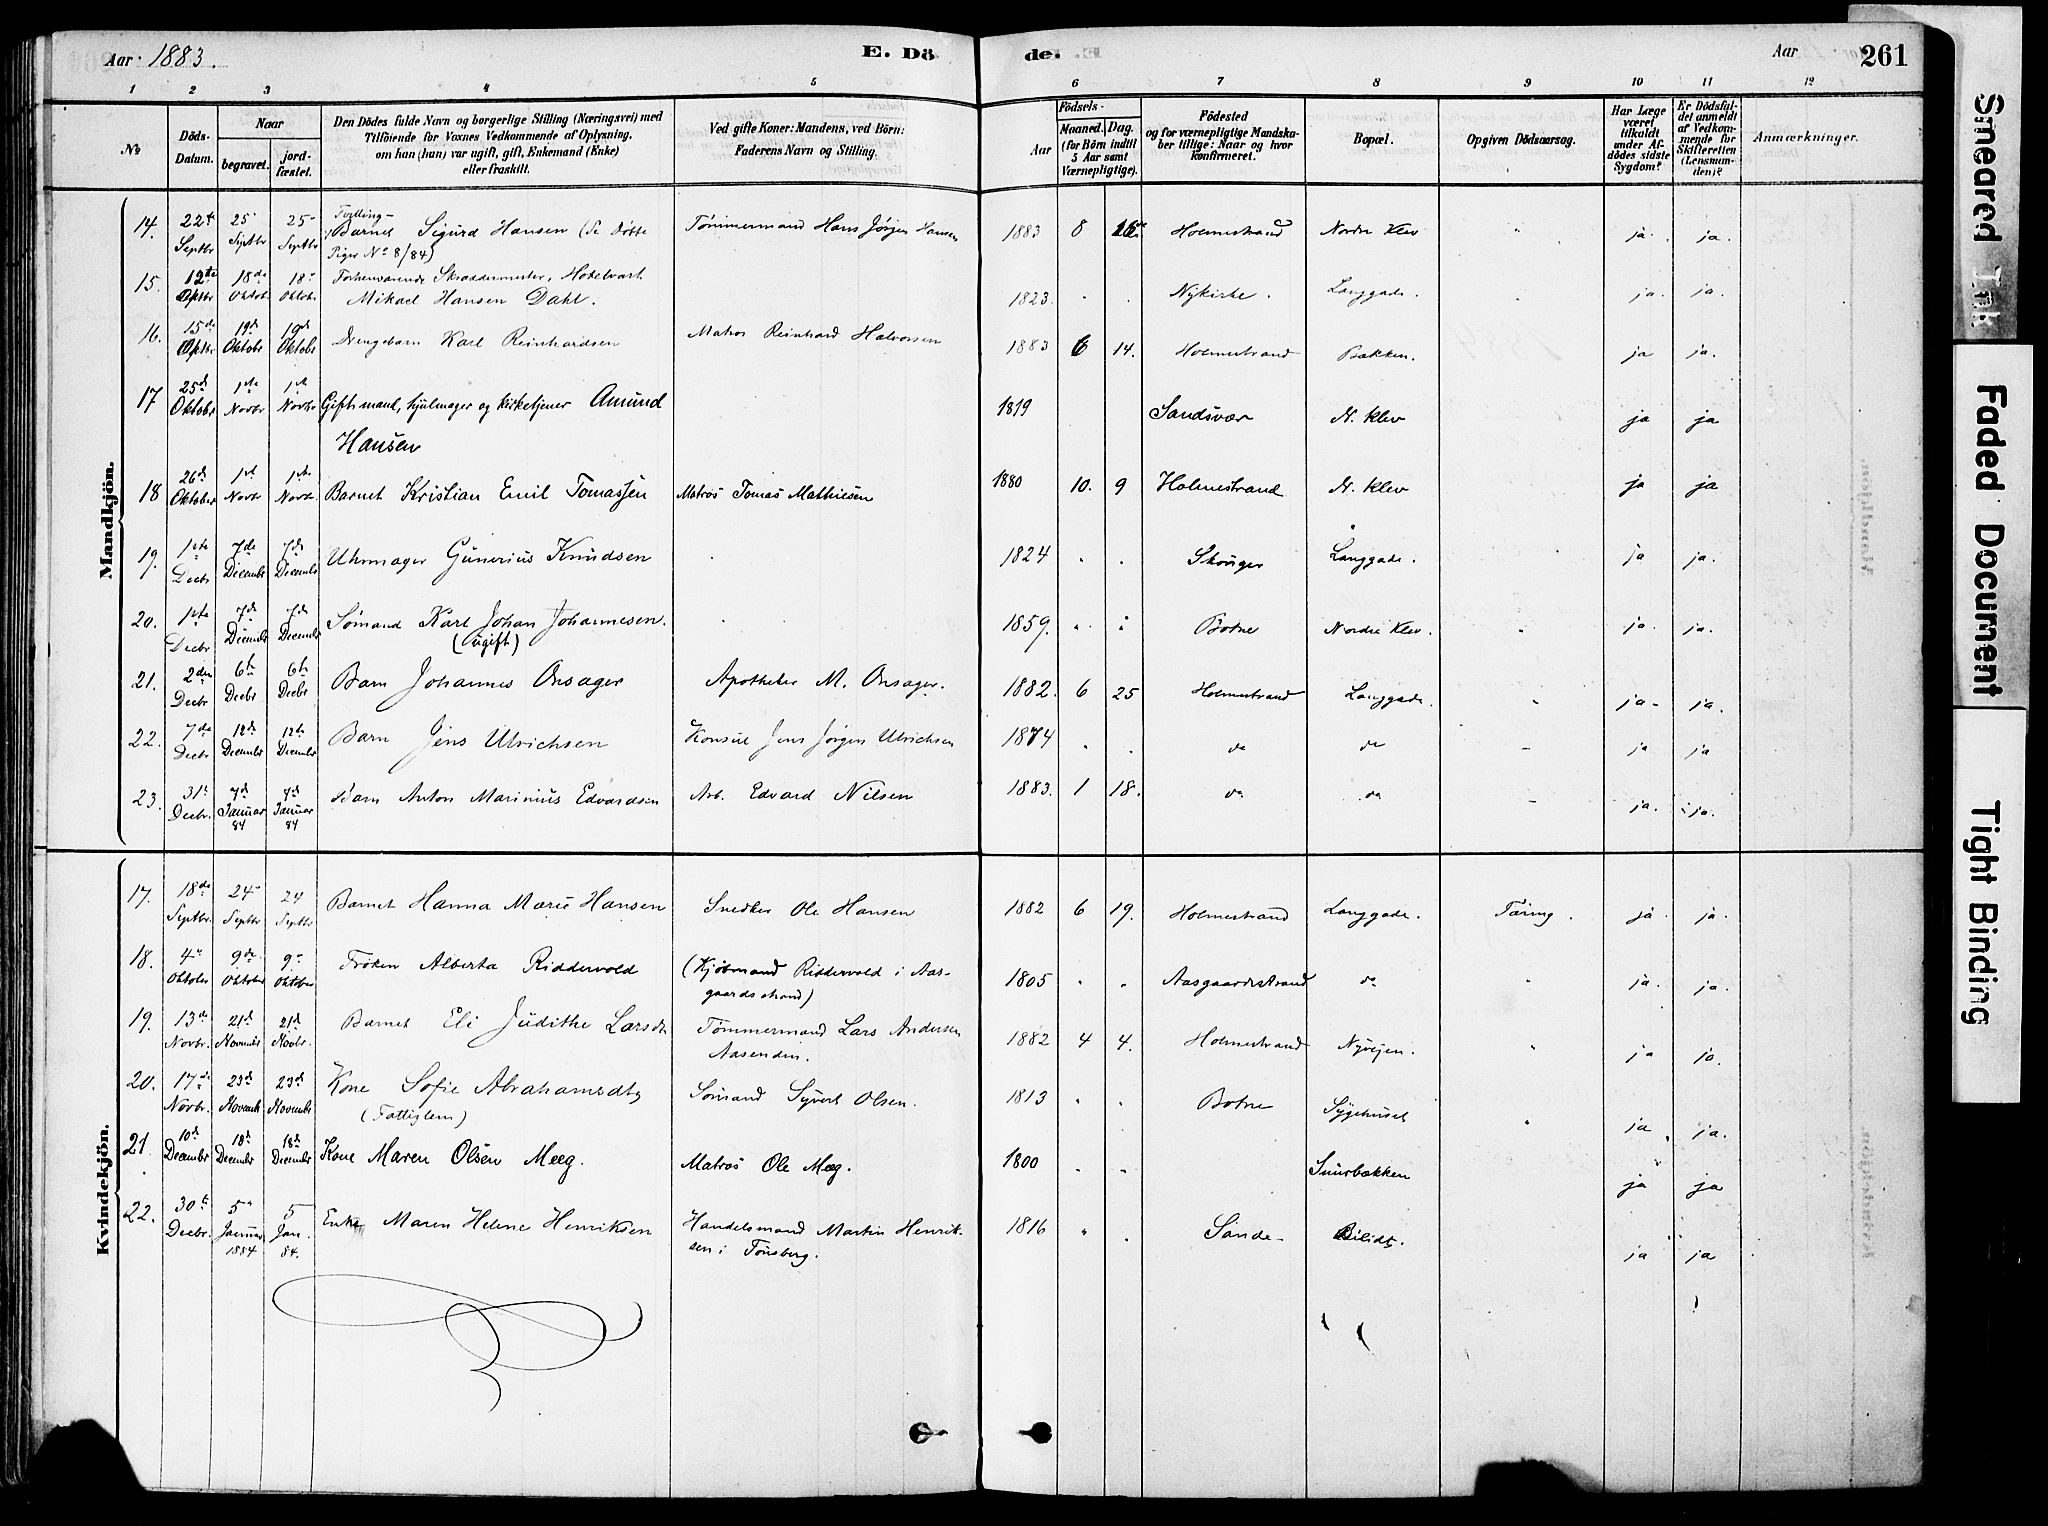 Aar 1883.
E. Döde.
Aar
261
1 2 3 4 5 6 7 8 9 10 11 12
№
Döds-Datum.
Naar
begravet.
jordfæstet.
Den Dödes fulde Navn og borgerlige Stilling (Næringsvei) med
Tilföiende for Voxnes Vedkommende af Oplysning,
om han (hun) var ugift, gift, Enkemand (Enke)
eller fraskilt.
Ved gifte Koner: Mandens, ved Börn:
Faderens Navn og Stilling.
Födsels-
Aar
Maaned. Dag.
(for Börn indtil
5 Aar samt
Værnepligtige).
Födested
og for værnepligtige Mandskaber tillige: Naar og hvor
konfirmeret.
Bopæl.
Opgiven Dödsaarsag.
Har Læge været tilkaldt under Afdödes sidste Sygdom?
Er Dödsfaldet anmeldt af Vedkommende for Skifteretten (Lensmanden)?
Anmærkninger.
Mandkjön.
14. 22de Septbr 25 Septbr 25 Septbr Tvilling-Barnet Sigurd Hansen (Se Døbte Piger No 8/84) Tømmermand Hans Jørgen Hansen 1883 8 Holmestrand Nordre Klev " ja. ja.
15. 12te Optbr 18de Oktobr 18 Oktobr Forhenværende Skræddermester, Hotelvært Mikael Hansen Dahl. 1823 " " Nykirke. Langgade. " ja. ja.
16. 15de Optbr 19de Oktobr 19de Oktobr Drengebarn Karl Reinhardsen Matros Reinhard Halvorsen 1883 6 14. Holmestrand Bakken. ja ja.
17 25de Oktobr 1ste Novbr 1ste Novbr Gift mand, hjulmager og kirketjener Amund Hansen 1819 Sandsvær N. Klev ja ja
18 26de Oktober 1ste Novbr 1ste Novbr Barnet Kristian Emil Tomassen Matros Tomas Mathiesen 1880 10. 9 Holmestrand N. Klev ja ja
19. 1ste Decbr 7de Decembr 7de Decembr Uhrmager Gunerius Knudsen 1824 " " Skouger Langgade. ja ja.
20. 1ste Decbr 7de Decembr 7de Decembr Sømand Karl Johan Johannesen. (ugift) 1859. " " Botne Nordre Klev. " ja. ja.
21. 2den Decbr 6te Decbr 6te Decbr Barn Johannes Onsager Apotheker M. Onsager. 1882. 6 25 Holmestrand Langgade. " ja. ja.
22. 7de Decbr 12de Decembr 12de Decembr Barn Jens Ulrichsen Konsul Jens Jørgen Ulrichsen 1874 " " do do " ja ja
23. 31te Decbr. 7de Januar 84 7de Januar 84 Barn Anton Marinius Edvardsen Arb. Edvard Nilsen 1883. 1 18. do do " ja. ja.
Kvindekjön.
17. 18de Septbr. 24 Septbr 24 Septbr Barnet Hanna Marie Hansen Snedker Ole Hansen 1882 6 19. Holmestrand Langgade. Tæring. ja. ja.
18. 4de Oktober 9de Oktober 9de Oktober Frøken Alberta Riddervold (Kjøbmand Riddervold i Aasgaardsstrand) 1805 " " Aasgaardsstrand do " ja. ja.
19. 13de Novbr. 21de Novembr 21de Novbr. Barnet Eli Judithe Larsdt Tømmermand Lars Andersen Aasenden. 1882 4 4. Holmestrand Nyvejen. " ja ja.
20. 17de Novbr. 23de Novembr 23de Novembr Kone Sofie Abrahamsdtr (Fattiglem) Sømand Syvert Olsen. 1813 " " Botne Sygehuset " ja. ja.
21. 10de Decembr 18de Decembr 18de Decembr Kone Maren Olsen Møeg. Matros Ole Møeg. 1800 " " Snurbækken ja ja
22. 30te Decbr. 5 Januar 1884 5 Jan. 84. Enke Maren Helene Henriksen Handelsmand Martin Henriksen i Tønsberg. 1816 " " Sande ja ja
Smeared Ink
Faded Document
Tight Binding